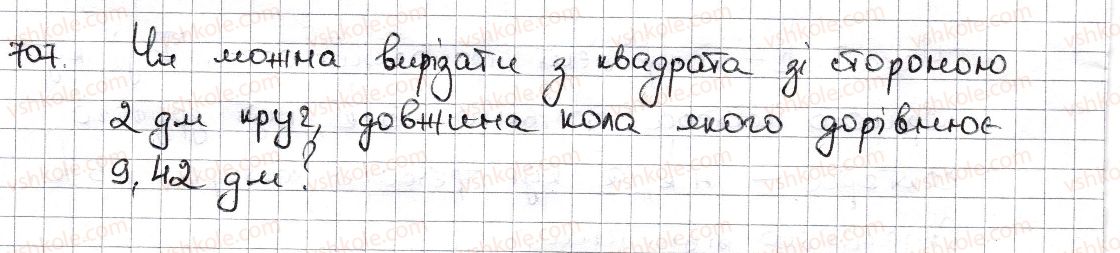 707. Чи можна вирізати з квадрата зі стороною
2 дм круг, довжина кола якого дорівнює
9,42 дм?